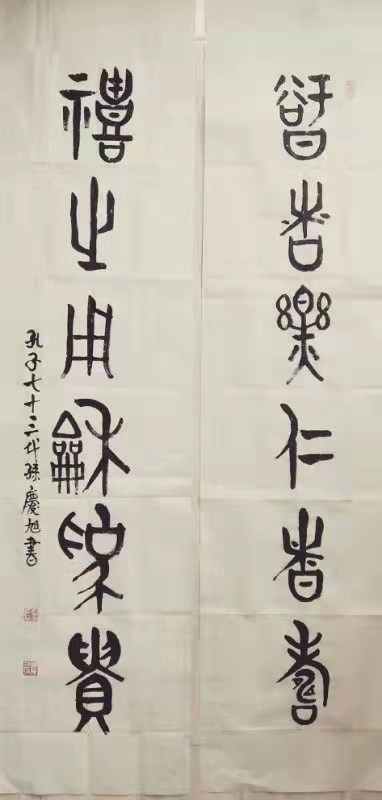 智者樂仁者壽
禮之用龢為貴
孔子七十三代孫慶旭書